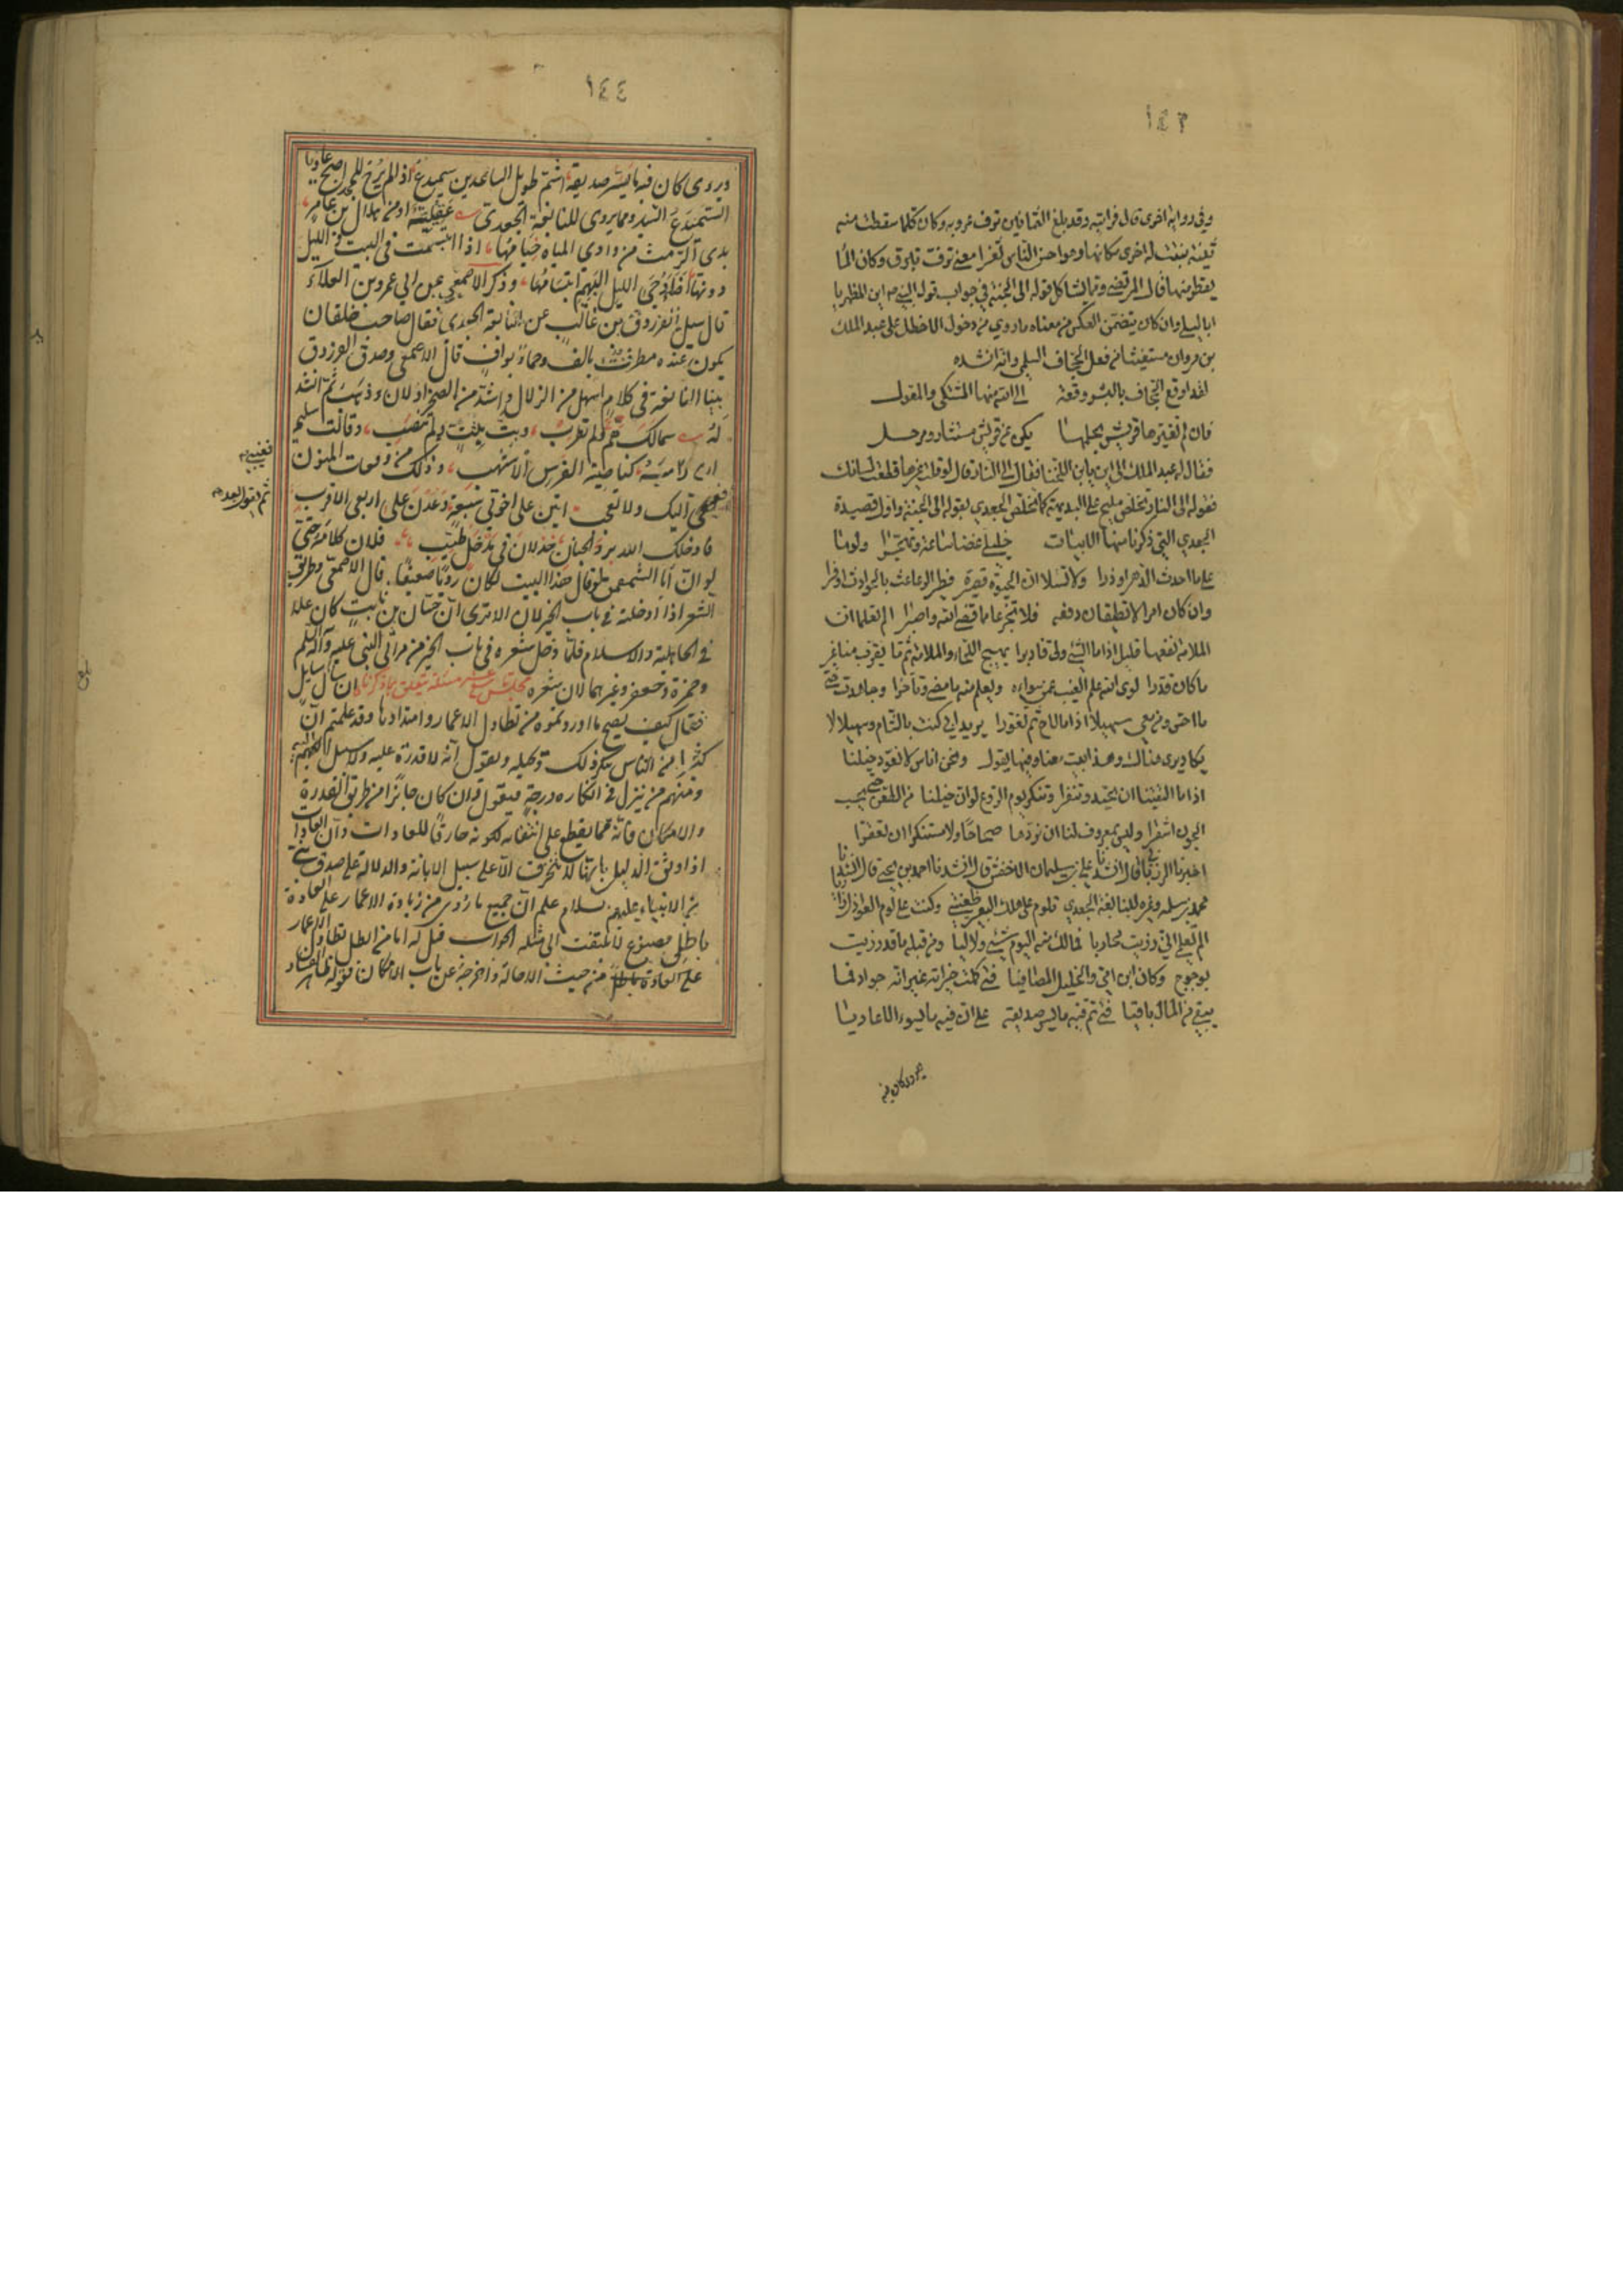 ١٤٣
وفي رواية اخرى قال فرايته وقد بلغ الثمانين ترف غروبه وكان كلما سقطت منه
ثنية نبتت له اخرى مكانها وهو احسن الناس ثغرا معنى ترف تبرق وكان الماء
يقطر منها قال المرتضى وقد يشاكل قوله الى الجنة في جواب قول النبي ص اين المظهر يا
ابا ليلى وان كان يتضمن العكس من معناه ما روي من دخول الاخطل على عبد الملك
بن مروان مستغيثا من فعل الجحاف السلمي وانه انشده
لقد اوقع الجحاف بالبشر وقعة الى الله منها المشتكى والمعول
فان لم تغيرها قريش بحلمها يكن عن قريش مستماز ومرحل
فقال له عبد الملك الى اين يا ابن اللخناء فقال الى النار قال لو قلت غيرها قطعت لسانك
فقوله الى النار تخلص مليح على البديهة كما تخلص الجعدي بقوله الى الجنة واول قصيدة
الجعدي التي ذكرنا منها الابيات خليلي غضا ساعة وتهجرا ولوما
على ما احدث الدهر او ذرا ولا تسلا ان الحيوة قصيرة فطيرا لروعات الحوادث او قرا
وان كان امر لا تطيقان دفعه فلا تجزعا مما قضى الله واصبرا الم تعلما ان
الملامة نفعها قليل اذا ما الشيء ولى فادبرا يهيج اللحاء والملامة ثم ما يقرب منا غير
ما كان قدرا لوى الله علم الغيب عمن سواءه ويعلم منه ما مضى وتاخرا وجاهدت حتى
ما احس ومن معي سهيلا اذا ما لاح ثم تغورا يريد اني كنت بالشام وسهيل لا
يكاد يرى هناك وهذا بيت معنى وفيها يقول ونحن اناس لا نعود خيلنا
اذا ما التقينا ان تحيد وتنفرا وتنكر يوم الروع الوان خيلنا من الطعن حتى تحسب
الجون اشقرا وليس بمعروف لنا ان نردها صحاحا ولا مستنكرا ان تعقرا
اخبرنا المرزباني قال انشدنا علي بن سليمان الاخفش قال انشدنا احمد بن يحيى قال انشدنا
محمد بن سلام وغيره للنابغة الجعدي تلوم على هلك البعير ظعينتي وكنت على لوم العواذل زاريا
الم تعلمي اني رزيت محاربا فمالك منه اليوم شيء ولا ليا ومن قبله ما قد رزيت
بوحوح وكان ابن امي والخليل المصافيا فتى كملت خيراته غير انه جواد فما
يبقي من المال باقيا فتى تم فيه ما يسر صديقه على ان فيه ما يسوء الاعاديا
ويروى كان فيه
١٤٤
ويروى كان فيه ما يسر صديقه اشم طويل الساعدين سميدع اذا لم يرح للمجد اصبح غاديا
السميدع السيد ومما يروى للنابغة الجعدي عقيلية او من هلال بن عامر
بذي الرمث من وادي المياه خيامها اذا ابتسمت في البيت والليل
دونها اضاء دجى الليل البهيم ابتسامها وذكر الاصمعي عن ابي عمرو بن العلاء
قال سئل الفرزدق بن غالب عن النابغة الجعدي فقال صاحب خلقان
يكون عنده مطرف بالف وخمار بواف قال الاصمعي وصدق الفرزدق
بينا النابغة في كلام اسهل من الزلال واشد من الصخر اذ لان وذهب ثم انشد
له سمالك هم ولم تطرب وبت ببث ولم تنصب وقالت سليمى
ارى راسه كناصية الفرس الاشهب وذلك من وقعات المنون
ففيئي اليك ولا تعجبي اتين على اخوتي سبعة وعدن على ربعي الاقرب
ثم يقول بعده
فادخلك الله برد الجنان جذلان في مدخل طيب فلان كلامه حتى
لو ان ابا الشمقمق لو قال هذا البيت لكان رديا ضعيفا قال الاصمعي وطريق
الشعر اذا ادخلته في باب الخير لان الا ترى ان حسان بن ثابت كان علا
في الجاهلية والاسلام فلما دخل شعره في باب الخير من مراثي النبي عليه وآله السلم
وحمزة وجعفر وغيرهما لان شعره مسئلة تتعلق بما ذكرنا ان سال سايل
فقال كيف يصح ما اوردتموه من تطاول الاعمار وامتدادها وقد علمتم ان
كثيرا من الناس ينكر ذلك ويحيله ويقول انه لا قدرة عليه ولا سبيل اليه
ومنهم من ينزل في انكاره درجة فيقول وان كان جائزا من طريق القدرة
والامكان فانه مما يقطع على انتفائه لكونه خارقا للعادات وان العادات
اذا وثق الدليل بانها لا تنخرق الا على سبيل الابانة والدلالة على صدق نبي
من الانبياء عليهم السلام علم ان جميع ما روي من زيادة الاعمار على العادة
باطل مصنوع لا يلتفت الى مثله الجواب قيل له اما من ابطل تطاول الاعمار
على العادة من حيث الاحالة واخرجه عن باب الامكان فقوله ظاهر الفساد